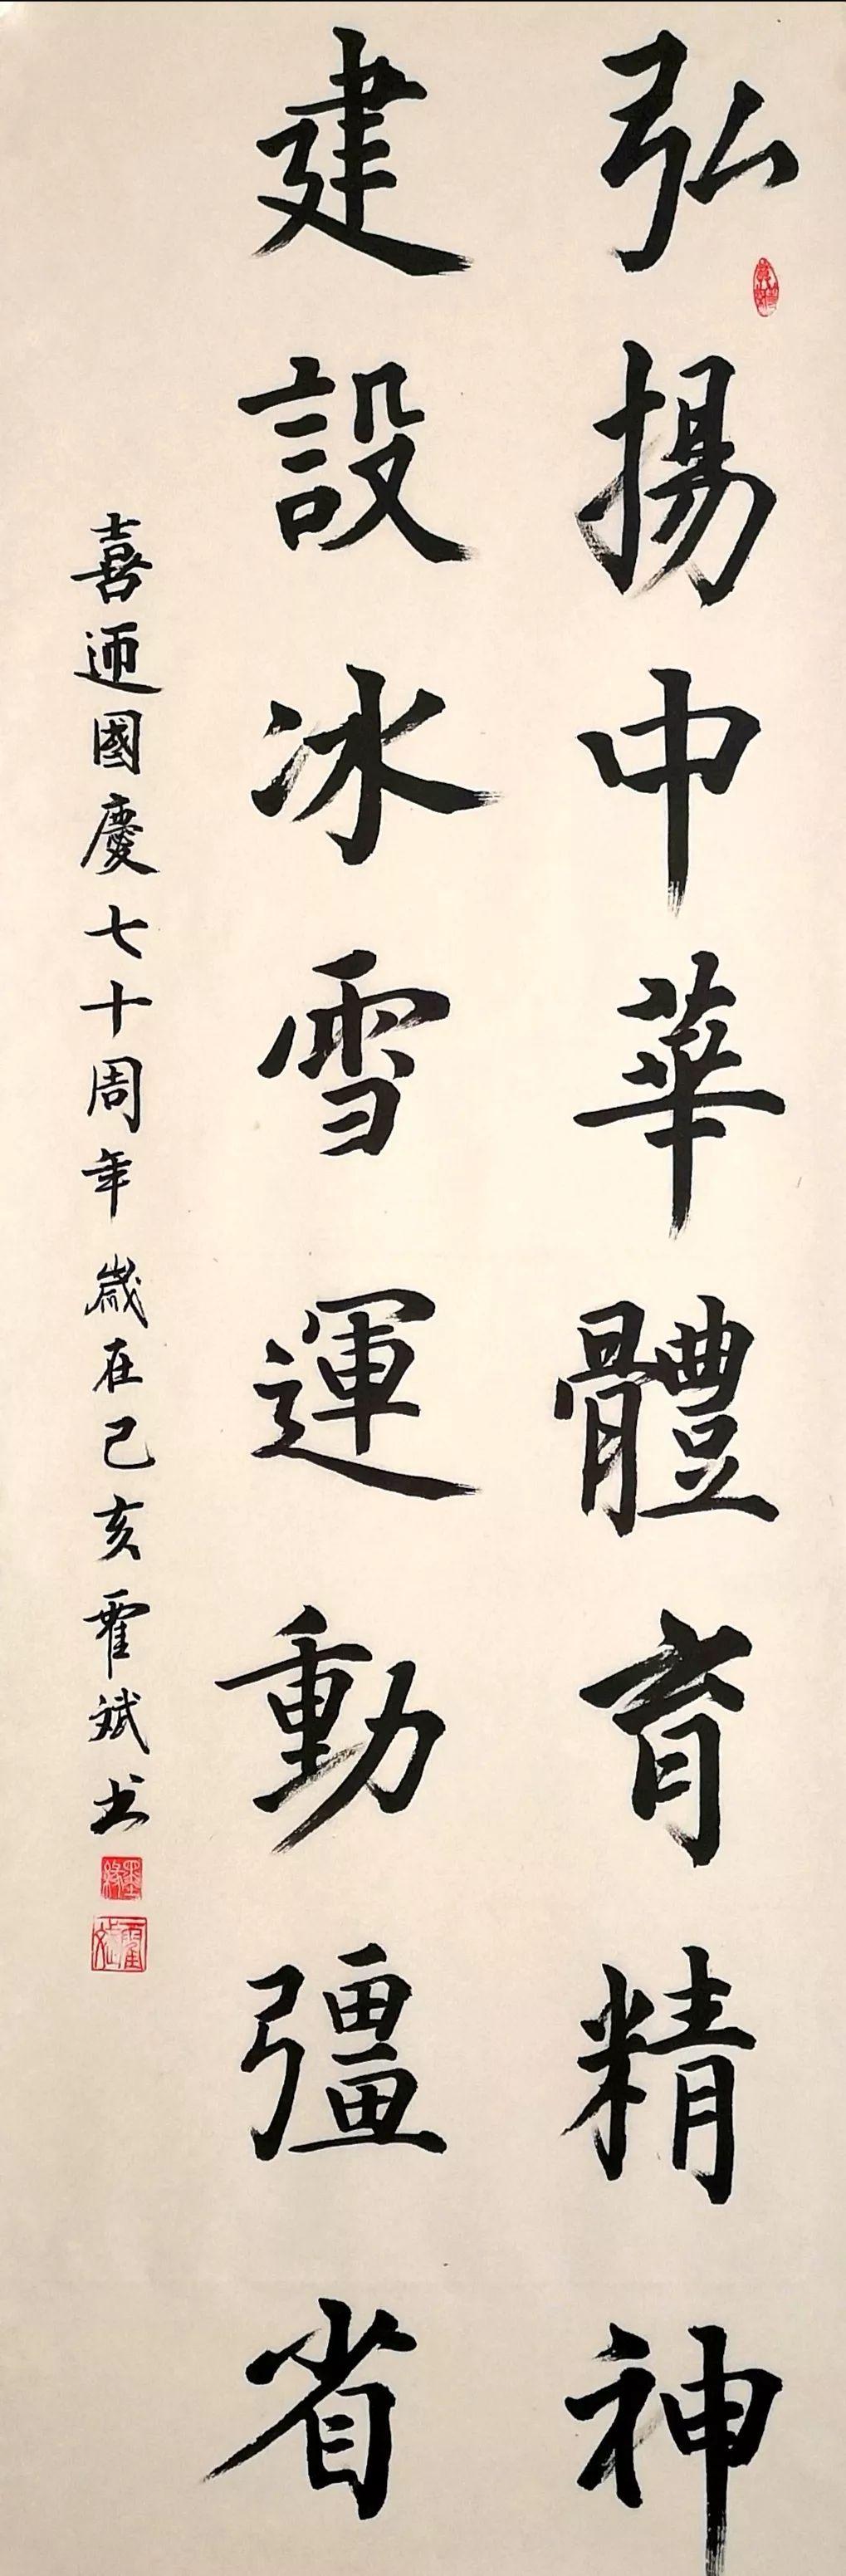 弘揚中華體育精神
建設冰雪運動彊省
喜迊國慶七十周年 歲在己亥霍斌书